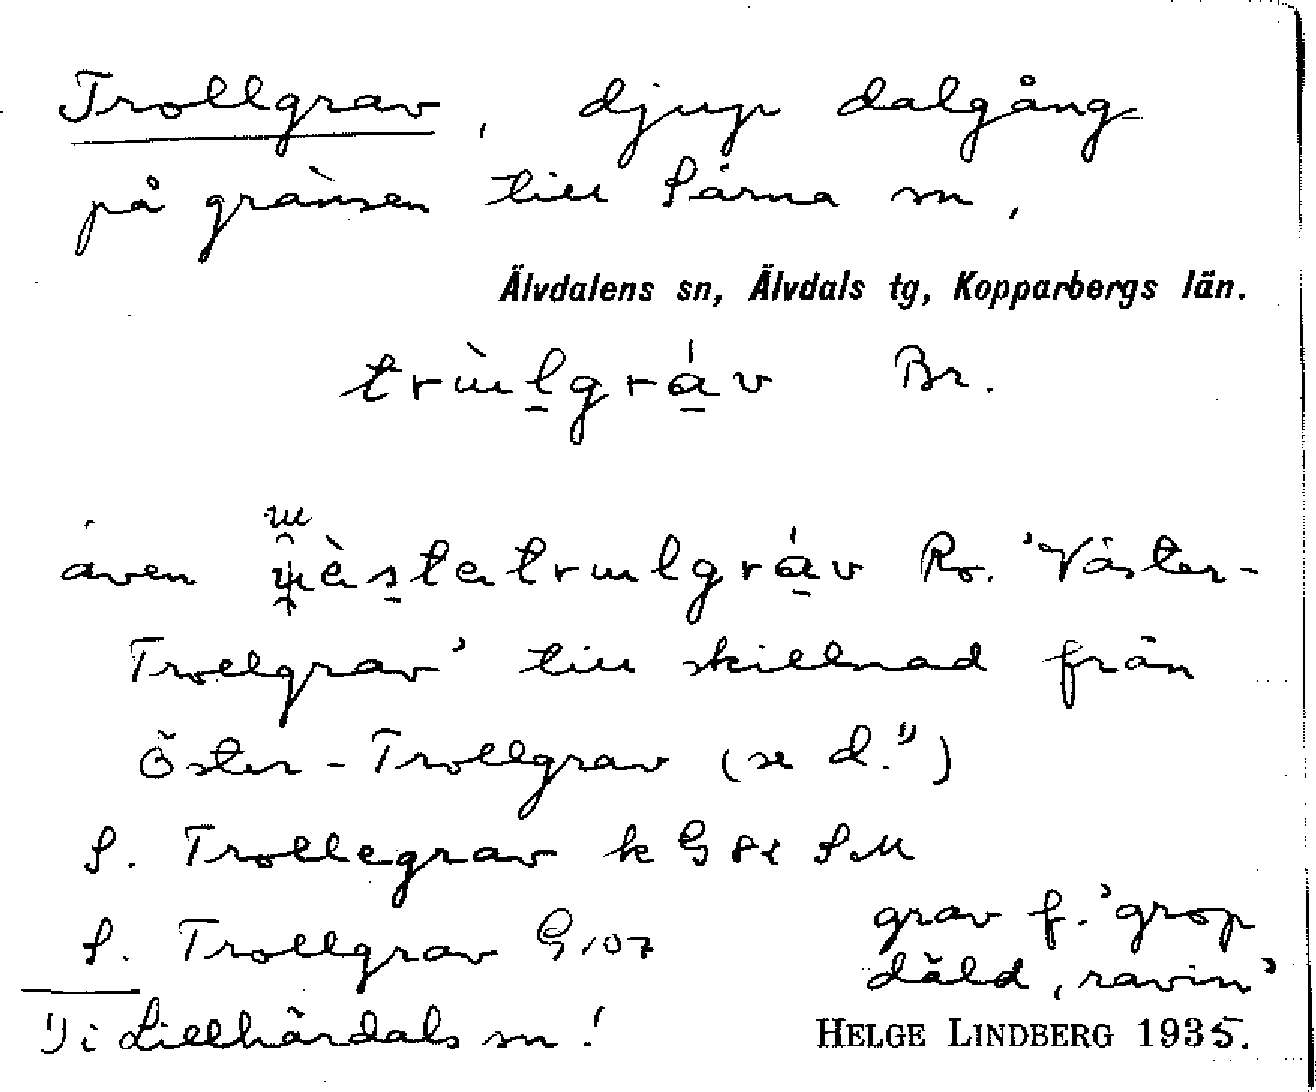 Trollgrav, djup dalgång
på gränsen till Särna sn,
Älvdalens sn, Älvdals tg, Kopparbergs län.
Br.
även Ro. 'Väster-
Trollgrav' till skillnad från
Öster-Trollgrav (se d.¹⁾)
S. Trollegrav k G 82 SM
S. Trollgrav G 107
grav f. 'grop
däld, ravin'
¹⁾ i Lillhärdals sn!
HELGE LINDBERG 1935.